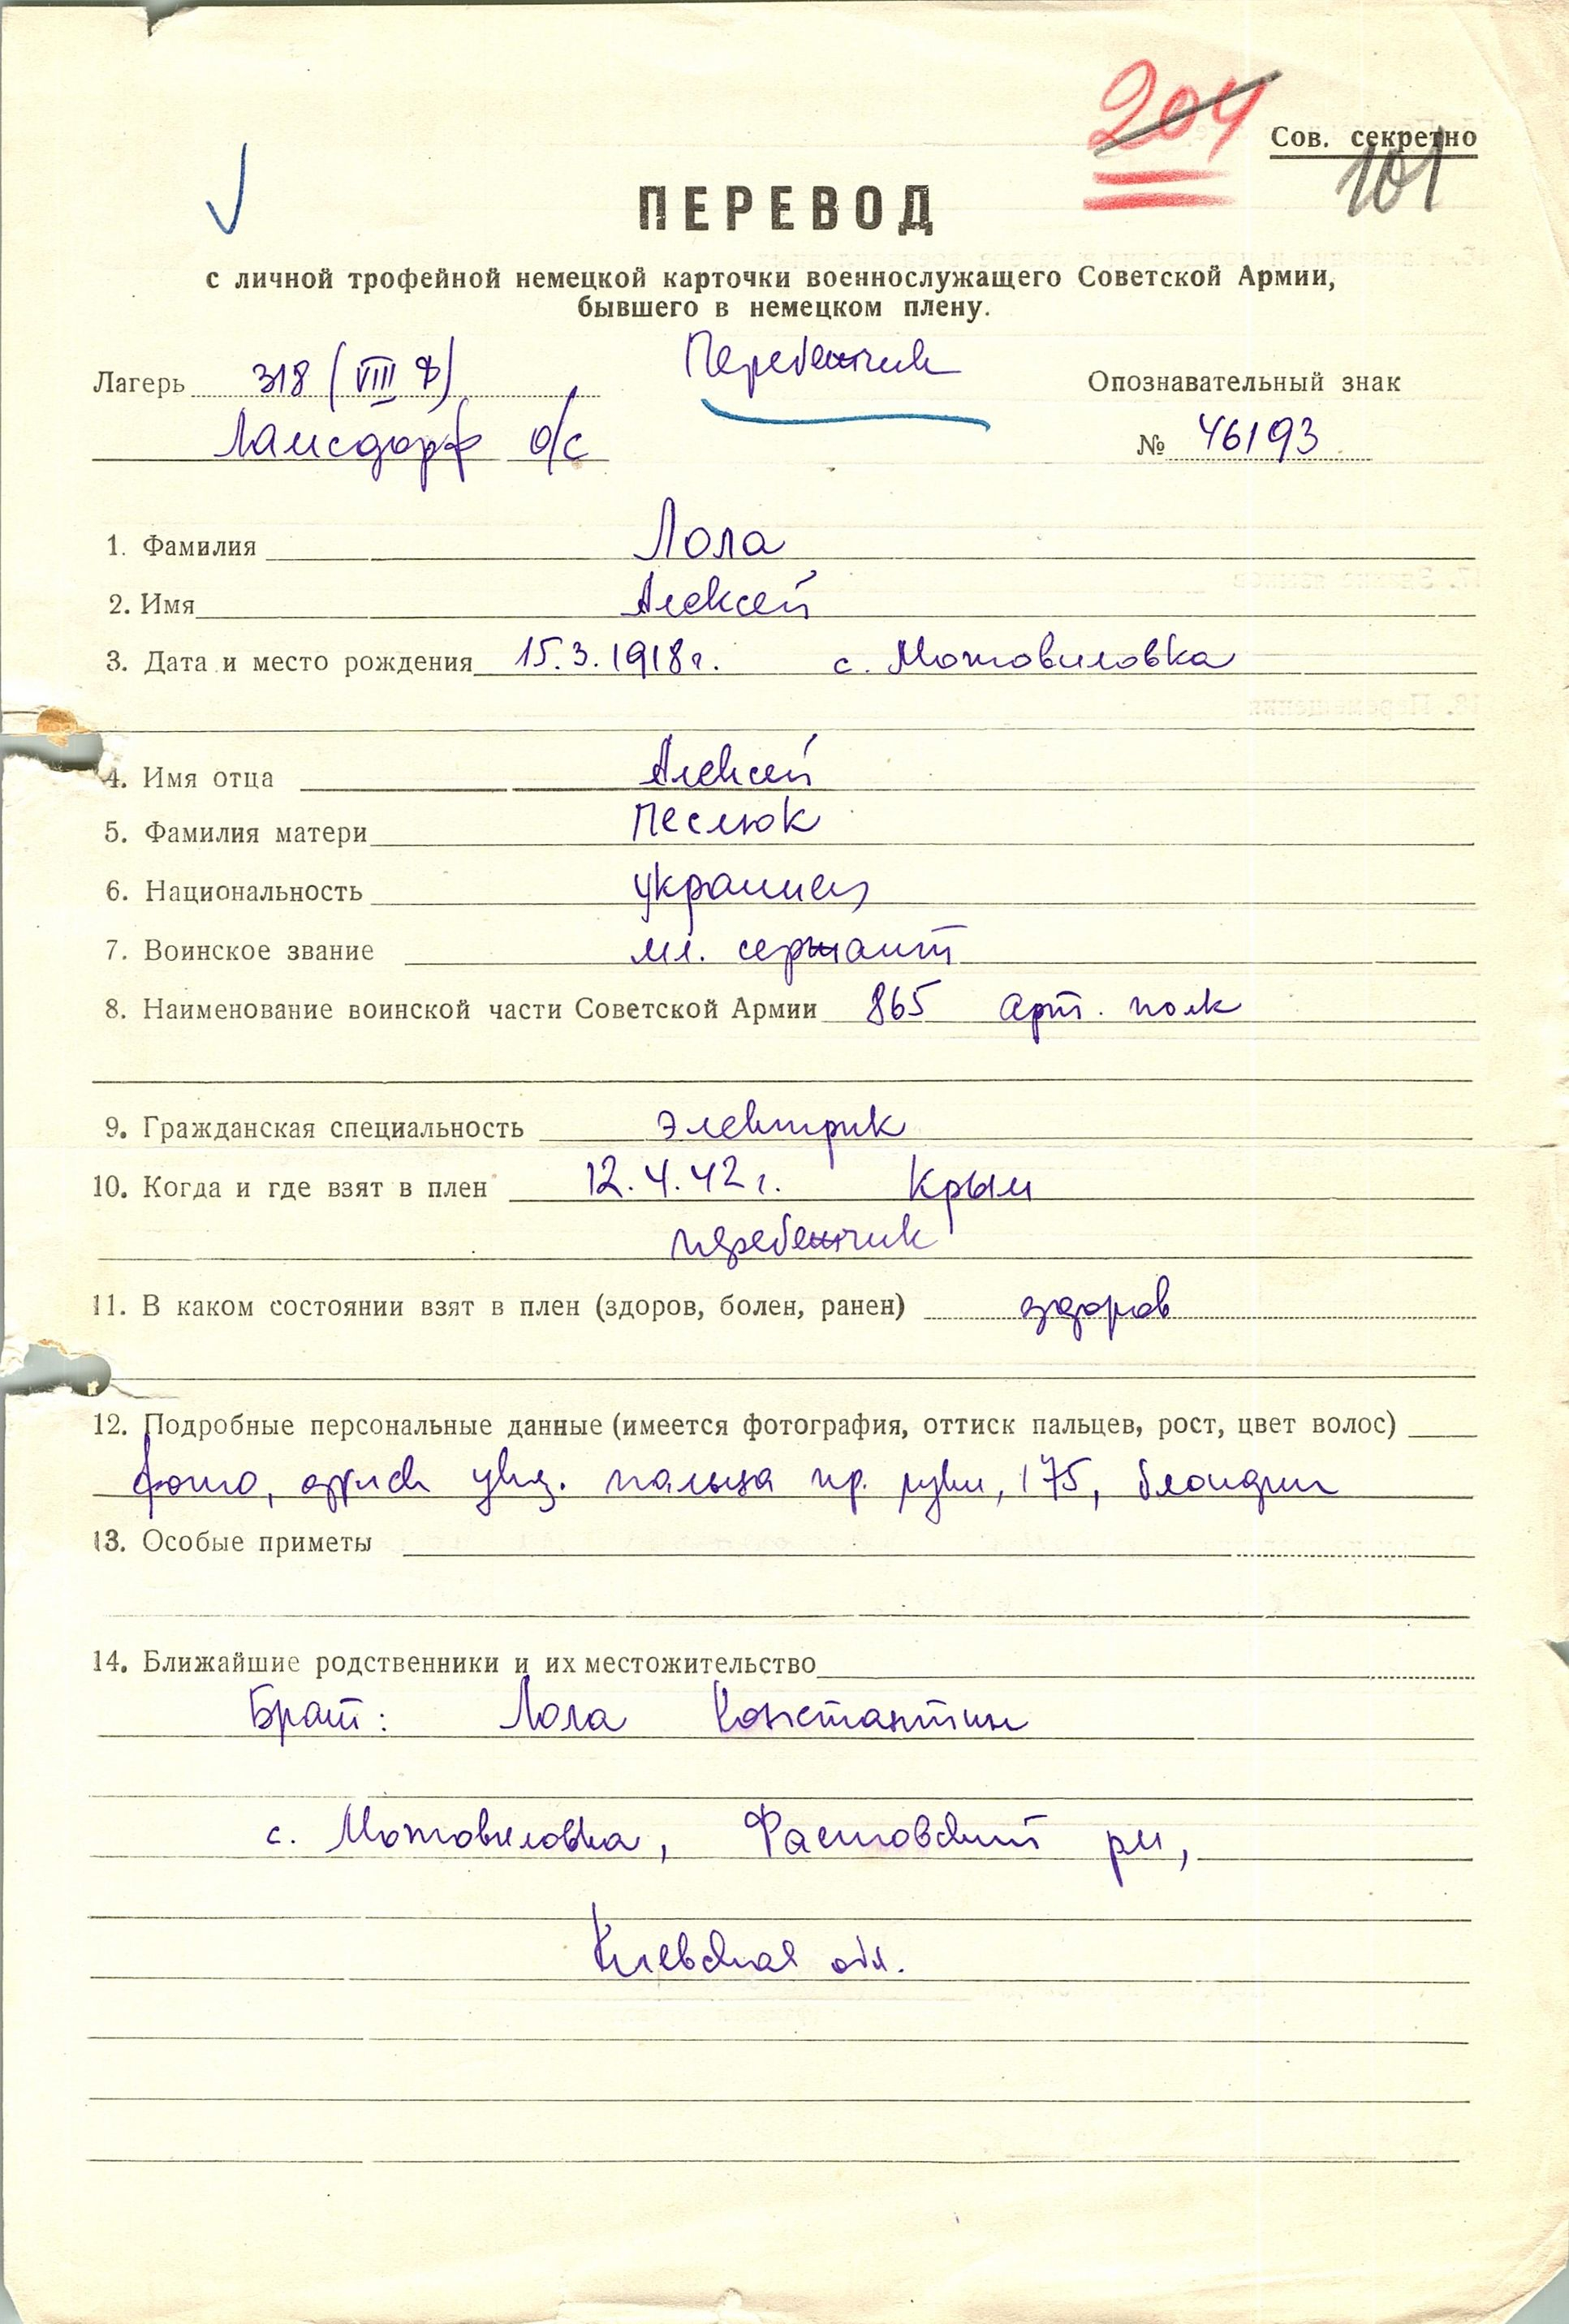 204
Сов. секретно
101
ПЕРЕВОД
с личной трофейной немецкой карточки военнослужащего Советской Армии,
бывшего в немецком плену.
Перебежчик
Лагерь 318 (VIII Ф) Опознавательный знак
Ламсдорф о/с № 46193
1. Фамилия Лола
2. Имя Алексей
3. Дата и место рождения 15.3.1918г. с. Мотовиловка
4. Имя отца Алексей
5. Фамилия матери Песлюк
6. Национальность украинец
7. Воинское звание мл. сержант
8. Наименование воинской части Советской Армии 865 арт. полк
9. Гражданская специальность электрик
10. Когда и где взят в плен 12.4.42г. Крым
перебежчик
11. В каком состоянии взят в плен (здоров, болен, ранен) здоров
12. Подробные персональные данные (имеется фотография, оттиск пальцев, рост, цвет волос)
фото, оттиск указ. пальца пр. руки, 175, блондин
13. Особые приметы
14. Ближайшие родственники и их местожительство
Брат: Лола Константин
с. Мотовиловка, Фастовский рн,
Киевская обл.